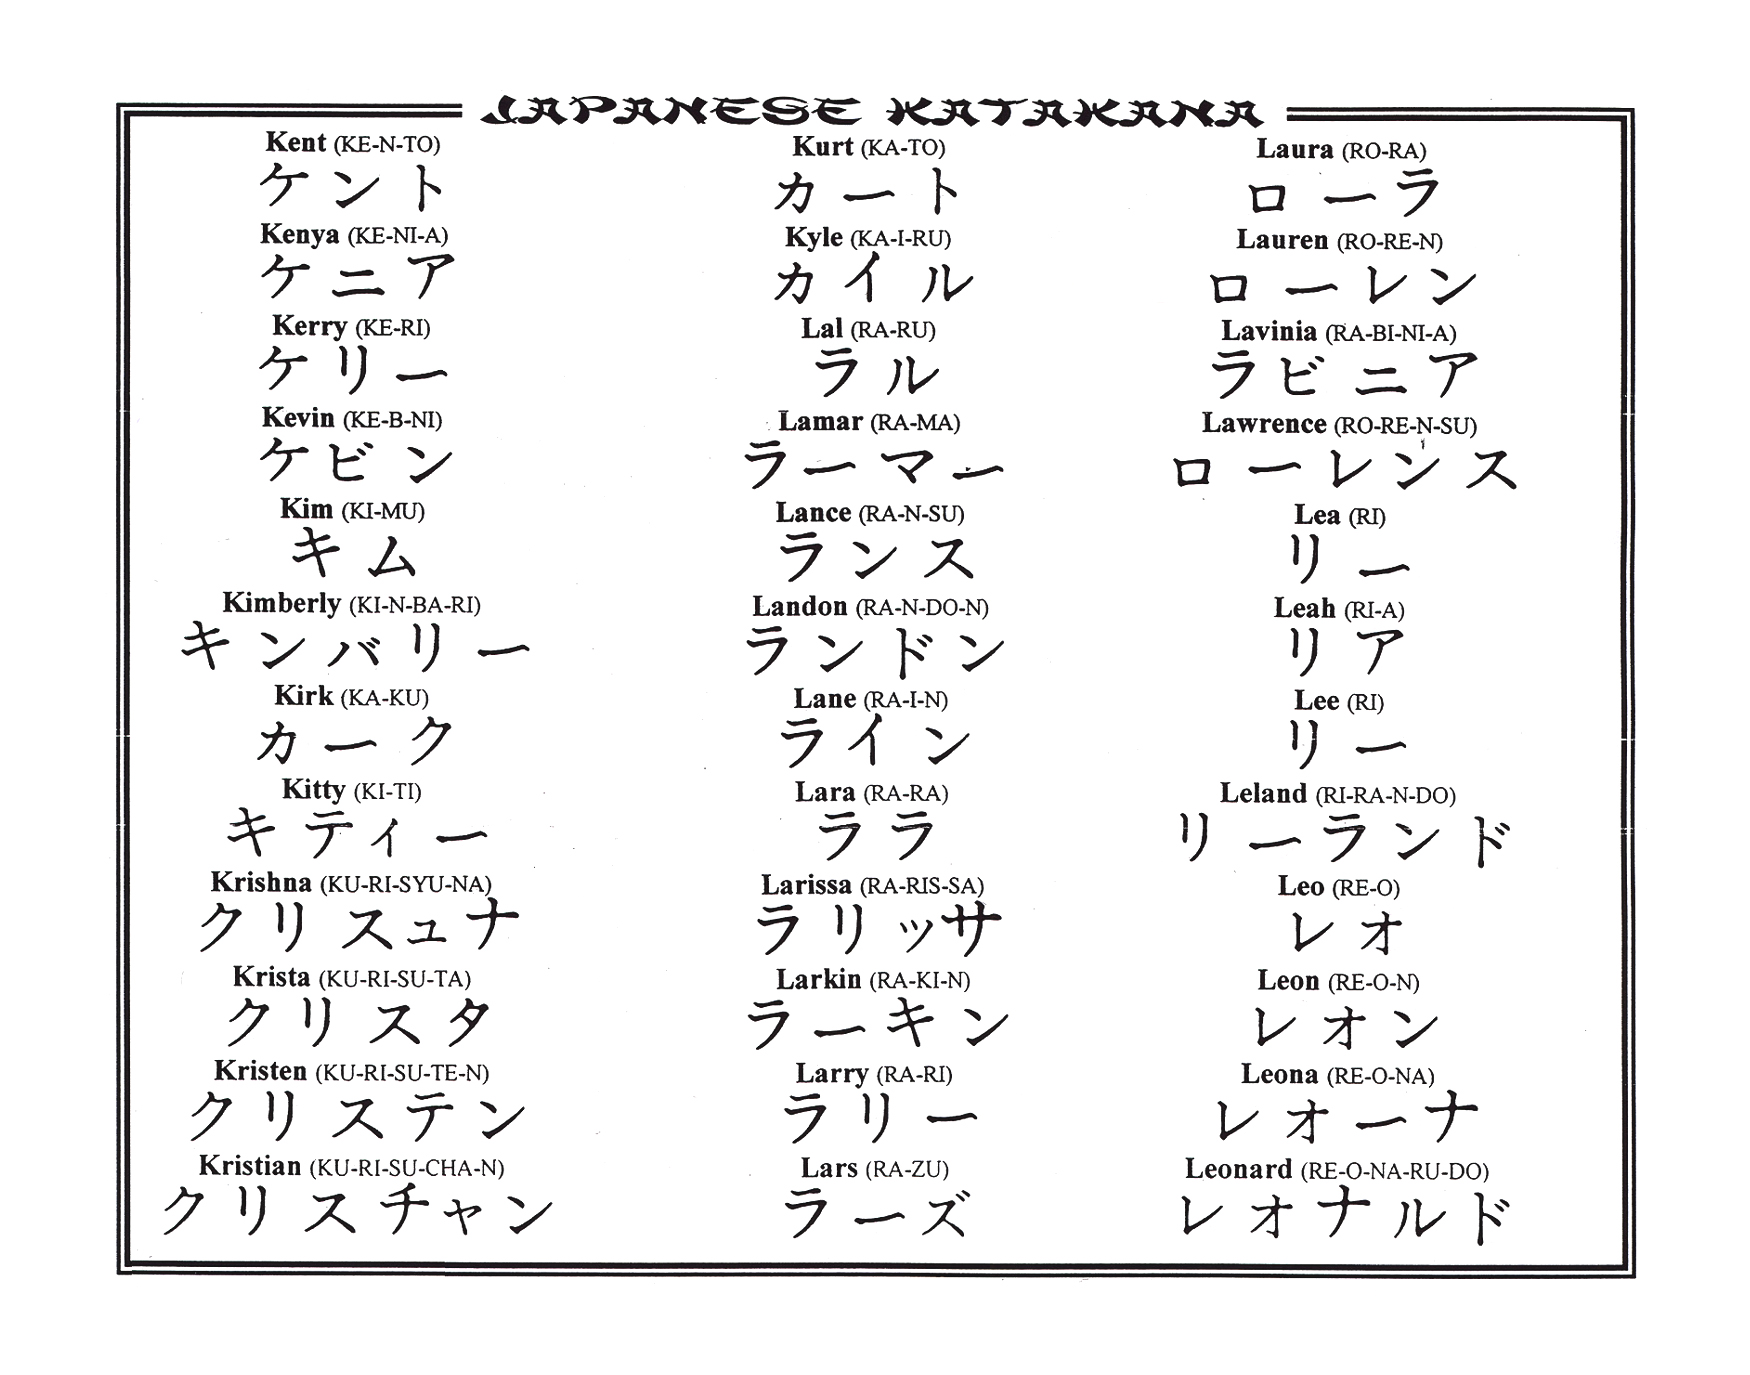 JAPANESE KATAKANA
Kent (KE-N-TO)
ケント
Kenya (KE-NI-A)
ケニア
Kerry (KE-RI)
ケリー
Kevin (KE-B-NI)
ケビン
Kim (KI-MU)
キム
Kimberly (KI-N-BA-RI)
キンバリー
Kirk (KA-KU)
カーク
Kitty (KI-TI)
キティー
Krishna (KU-RI-SYU-NA)
クリスュナ
Krista (KU-RI-SU-TA)
クリスタ
Kristen (KU-RI-SU-TE-N)
クリステン
Kristian (KU-RI-SU-CHA-N)
クリスチャン
Kurt (KA-TO)
カート
Kyle (KA-I-RU)
カイル
Lal (RA-RU)
ラル
Lamar (RA-MA)
ラーマー
Lance (RA-N-SU)
ランス
Landon (RA-N-DO-N)
ランドン
Lane (RA-I-N)
ライン
Lara (RA-RA)
ララ
Larissa (RA-RIS-SA)
ラリッサ
Larkin (RA-KI-N)
ラーキン
Larry (RA-RI)
ラリー
Lars (RA-ZU)
ラーズ
Laura (RO-RA)
ローラ
Lauren (RO-RE-N)
ローレン
Lavinia (RA-BI-NI-A)
ラビニア
Lawrence (RO-RE-N-SU)
ローレンス
Lea (RI)
リー
Leah (RI-A)
リア
Lee (RI)
リー
Leland (RI-RA-N-DO)
リーランド
Leo (RE-O)
レオ
Leon (RE-O-N)
レオン
Leona (RE-O-NA)
レオーナ
Leonard (RE-O-NA-RU-DO)
レオナルド